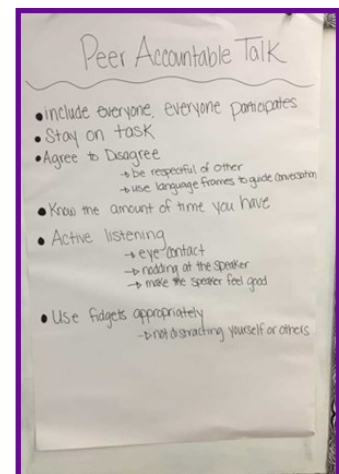 Peer Accountable Talk
• include everyone, everyone participates
• Stay on task
• Agree to Disagree
→ be respectful of other
→ use language frames to guide conversation
• Know the amount of time you have
• Active listening
→ eye contact
→ nodding at the speaker
→ make the speaker feel good
• Use fidgets appropriately
→ not distracting yourself or others